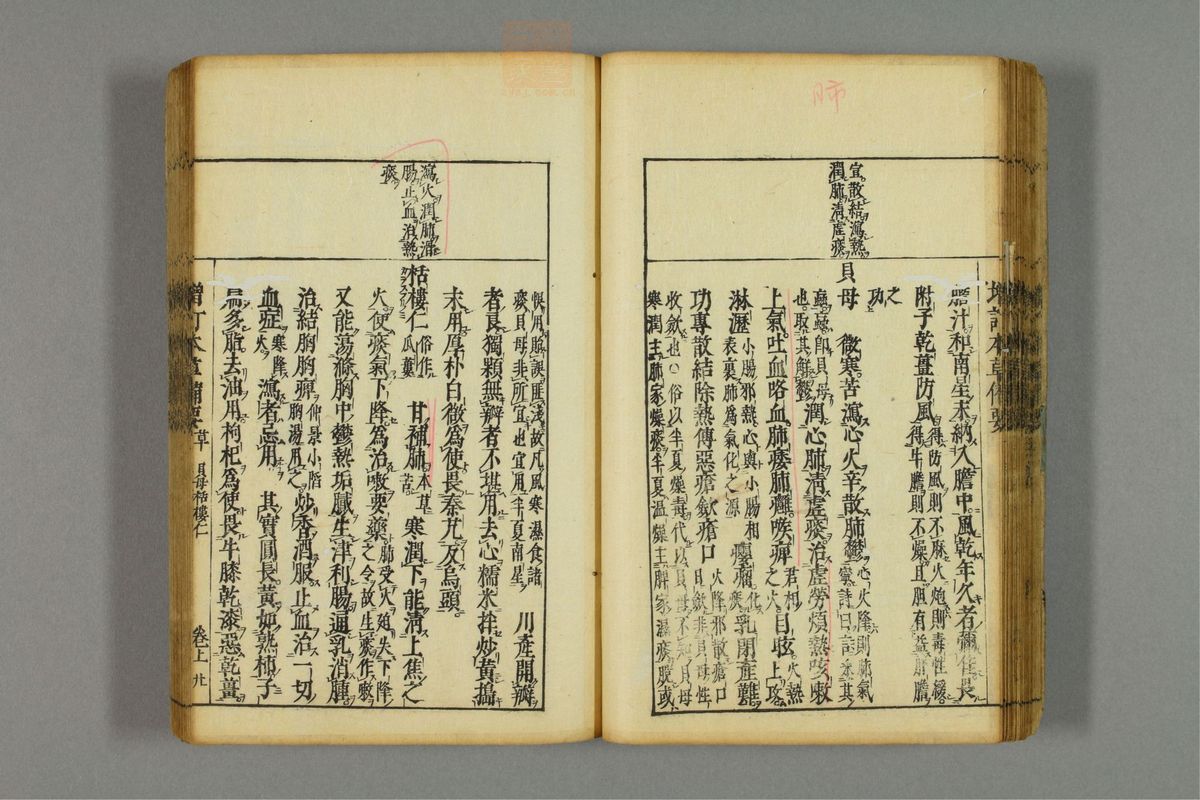 肺
宜散結瀉熱
潤肺清虛痰
膽汁和南星末納入膽中風乾年久者彌佳畏
附子乾薑防風得防風則不麻火炮則毒性緩
得牛膽則不燥且胆有益肝膽
之
功
貝母 微寒苦瀉心火辛散肺鬱心火降則肺氣
寧詩曰言采其
蝱蝱卽貝母
也取其解鬱潤心肺淸虛痰治虛勞煩熱咳嗽
上氣吐血咯血肺痿肺癰喉痺君相
之火目眩火熱
上攻
淋瀝小腸邪熱心與小腸相
表裏肺爲氣化之源癭瘤化
痰乳閉產難
功專散結除熱傅惡瘡斂瘡口火降邪散瘡口
自斂非貝母性
收斂也○俗以半夏燥毒代以貝母不知貝母
寒潤主肺家燥痰半夏溫燥主脾家濕痰脫或
瀉火潤肺滑
腸止血消熱
痰
悞用貽誤匪淺故凡風寒濕食諸
痰貝母非所宜也宜用半夏南星 川產開瓣
者良獨顆無瓣者不堪用去心糯米拌炒黃搗
末用厚朴白微爲使畏秦艽反烏頭
栝樓仁俗作
瓜蔞 甘補肺本草
苦寒潤下能淸上焦之
火使痰氣下降爲治嗽要藥肺受火廹失下降
之令故生痰作嗽
又能蕩滌胸中鬱熱垢膩生津利腸通乳消腫
治結胸胸痺仲景小陷
胸湯用之炒香酒服止血治一切
血症寒降
火瀉者忌用 其實圓長黃如熟柿子
扁多脂去油用枸杞爲使畏牛膝乾漆惡乾薑
增訂本草備要
草
貝母栝樓仁
卷上
廿
增訂本草備要